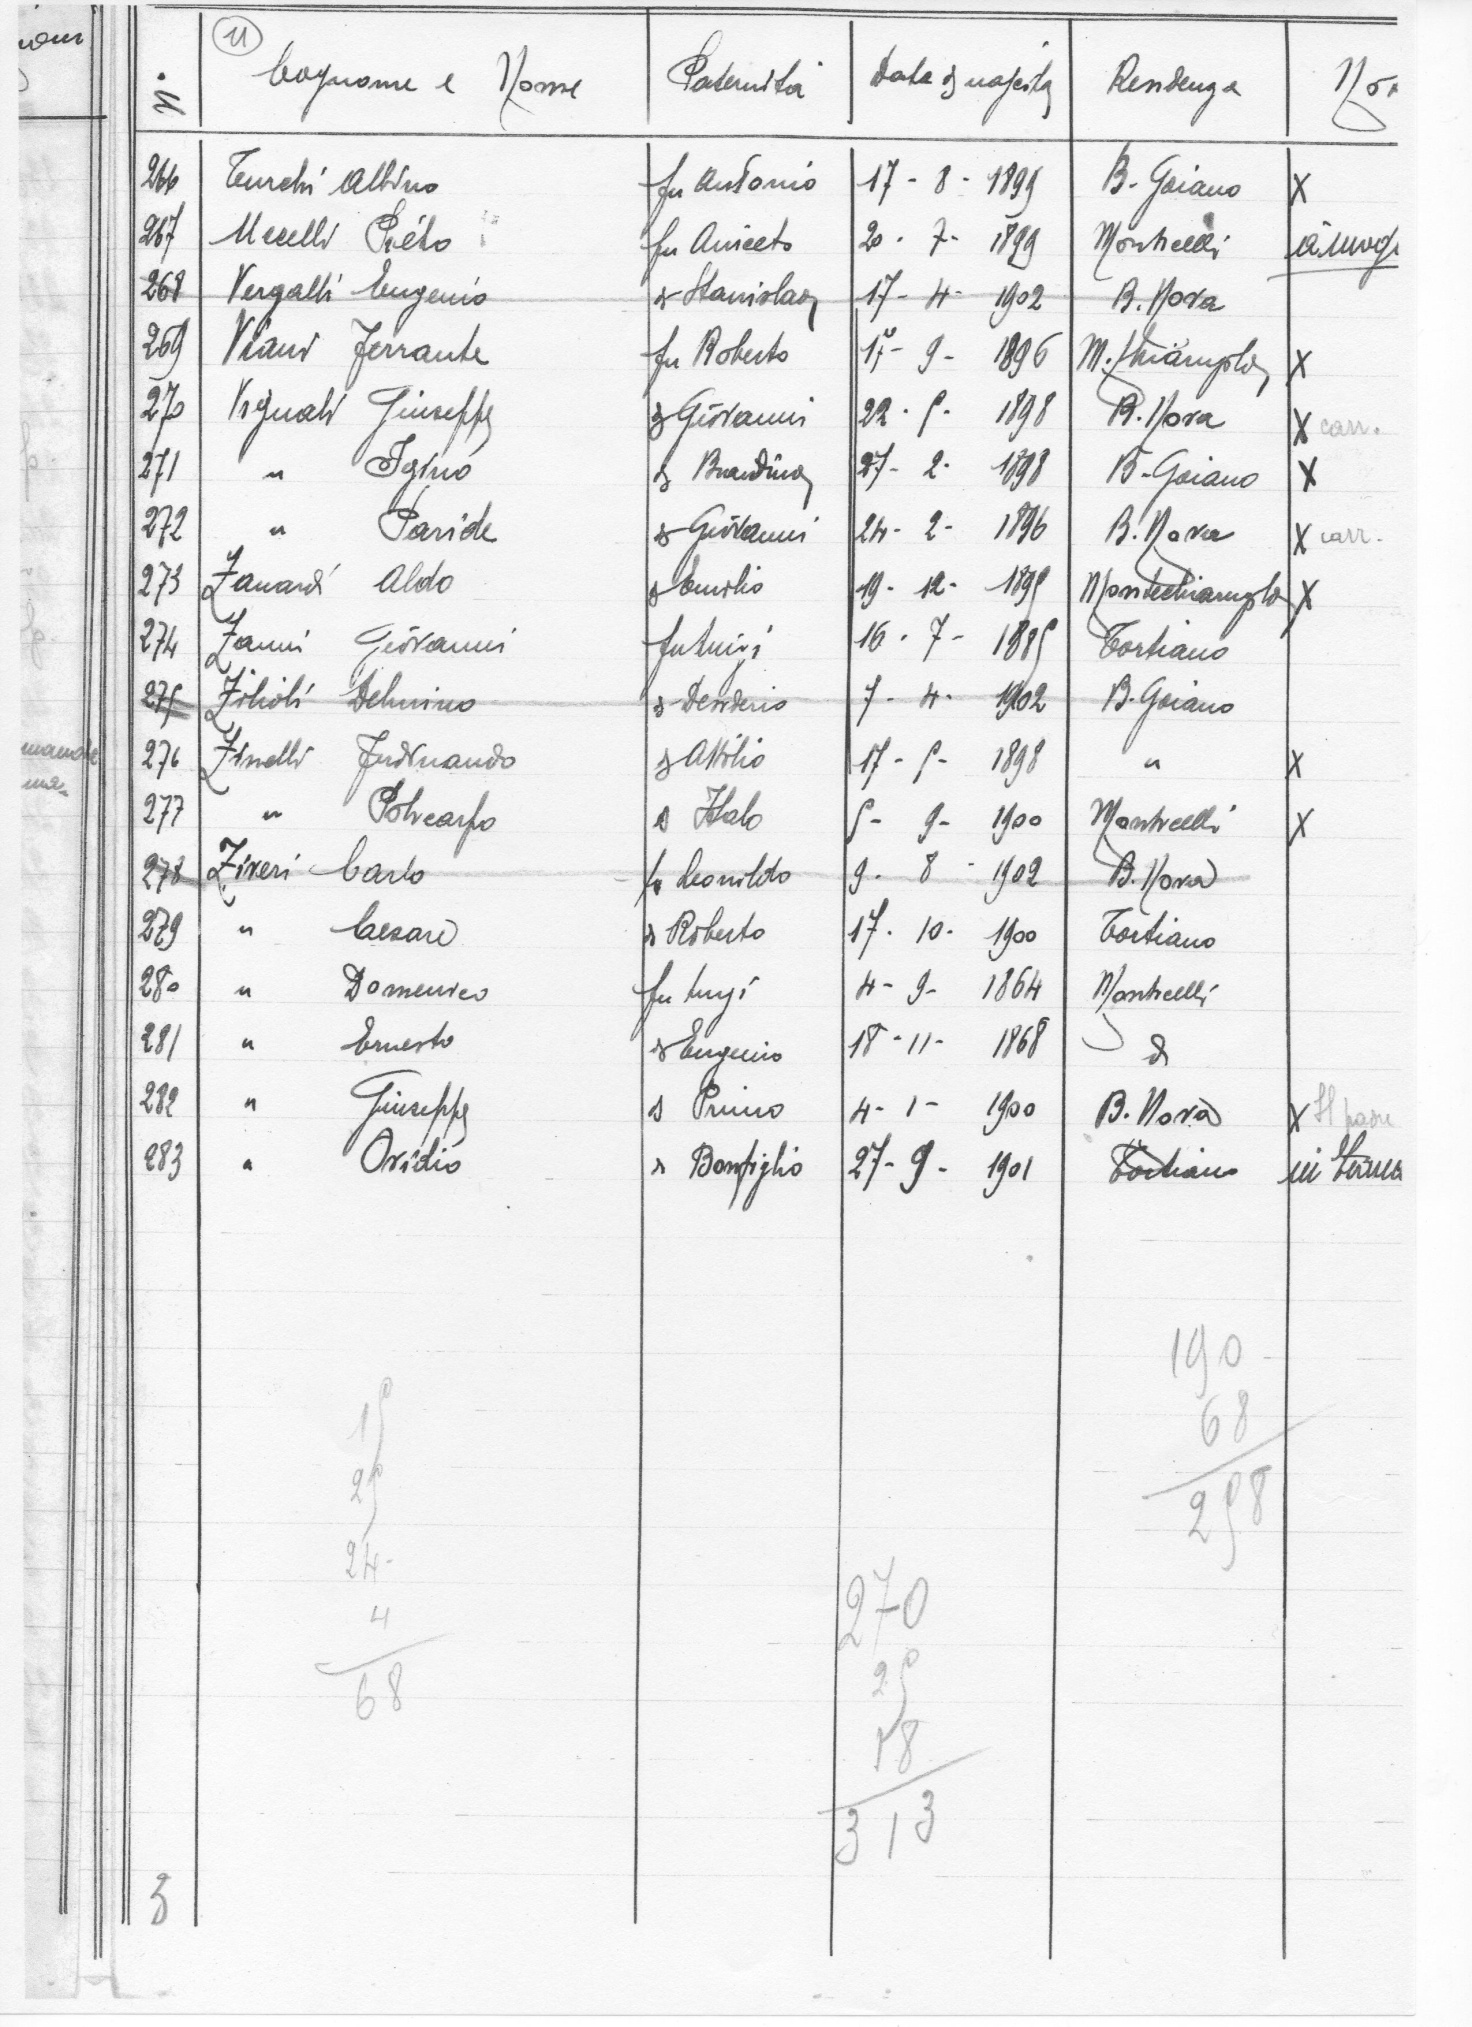 11
N. Cognome e Nome Paternità Data di nascita Residenza
266 Turchi Albino fu Antonio 17 - 8 - 1895 B. Goiano X
267 Ucelli Pieto fu Aniceto 20 - 7 - 1899 Monticelli
268 Vergalli Eugenio di Stanislao 17 - 4 - 1902 B. Nova
269 Viani Ferrante fu Roberto 17 - 9 - 1896 M. Chiarugolo X
270 Vignali Giuseppe di Giovanni 22 - 5 - 1898 B. Nova X carr.
271 " Igino di 27 - 2 - 1898 B. Goiano X
272 " Paride di Giovanni 24 - 2 - 1896 B. Nova X carr.
273 Zanardi Aldo di Emilio 19 - 12 - 1895 Montechiarugolo X
274 Zanni Giovanni fu Luigi 16 - 7 - 1885 Tortiano
275 Zilioli Delmino di Desiderio 7 - 4 - 1902 B. Goiano
276 Zinelli Ferdinando di Attilio 17 - 5 - 1898 " X
277 " Policarpo di Italo 5 - 9 - 1900 Monticelli X
278 Ziveri Carlo fu Leonildo 9 - 8 - 1902 B. Nova
279 " Cesare di Roberto 17 - 10 - 1900 Tortiano
280 " Domenico fu Luigi 4 - 9 - 1864 Monticelli
281 " Ernesto di Eugenio 18 - 11 - 1868 di
282 " Giuseppe di Primo 4 - 1 - 1900 B. Nova X
283 " Ovidio di Bonfiglio 27 - 9 - 1901 Tortiano in
190
68
258
15
25
24
4
68
270
25
18
313
3